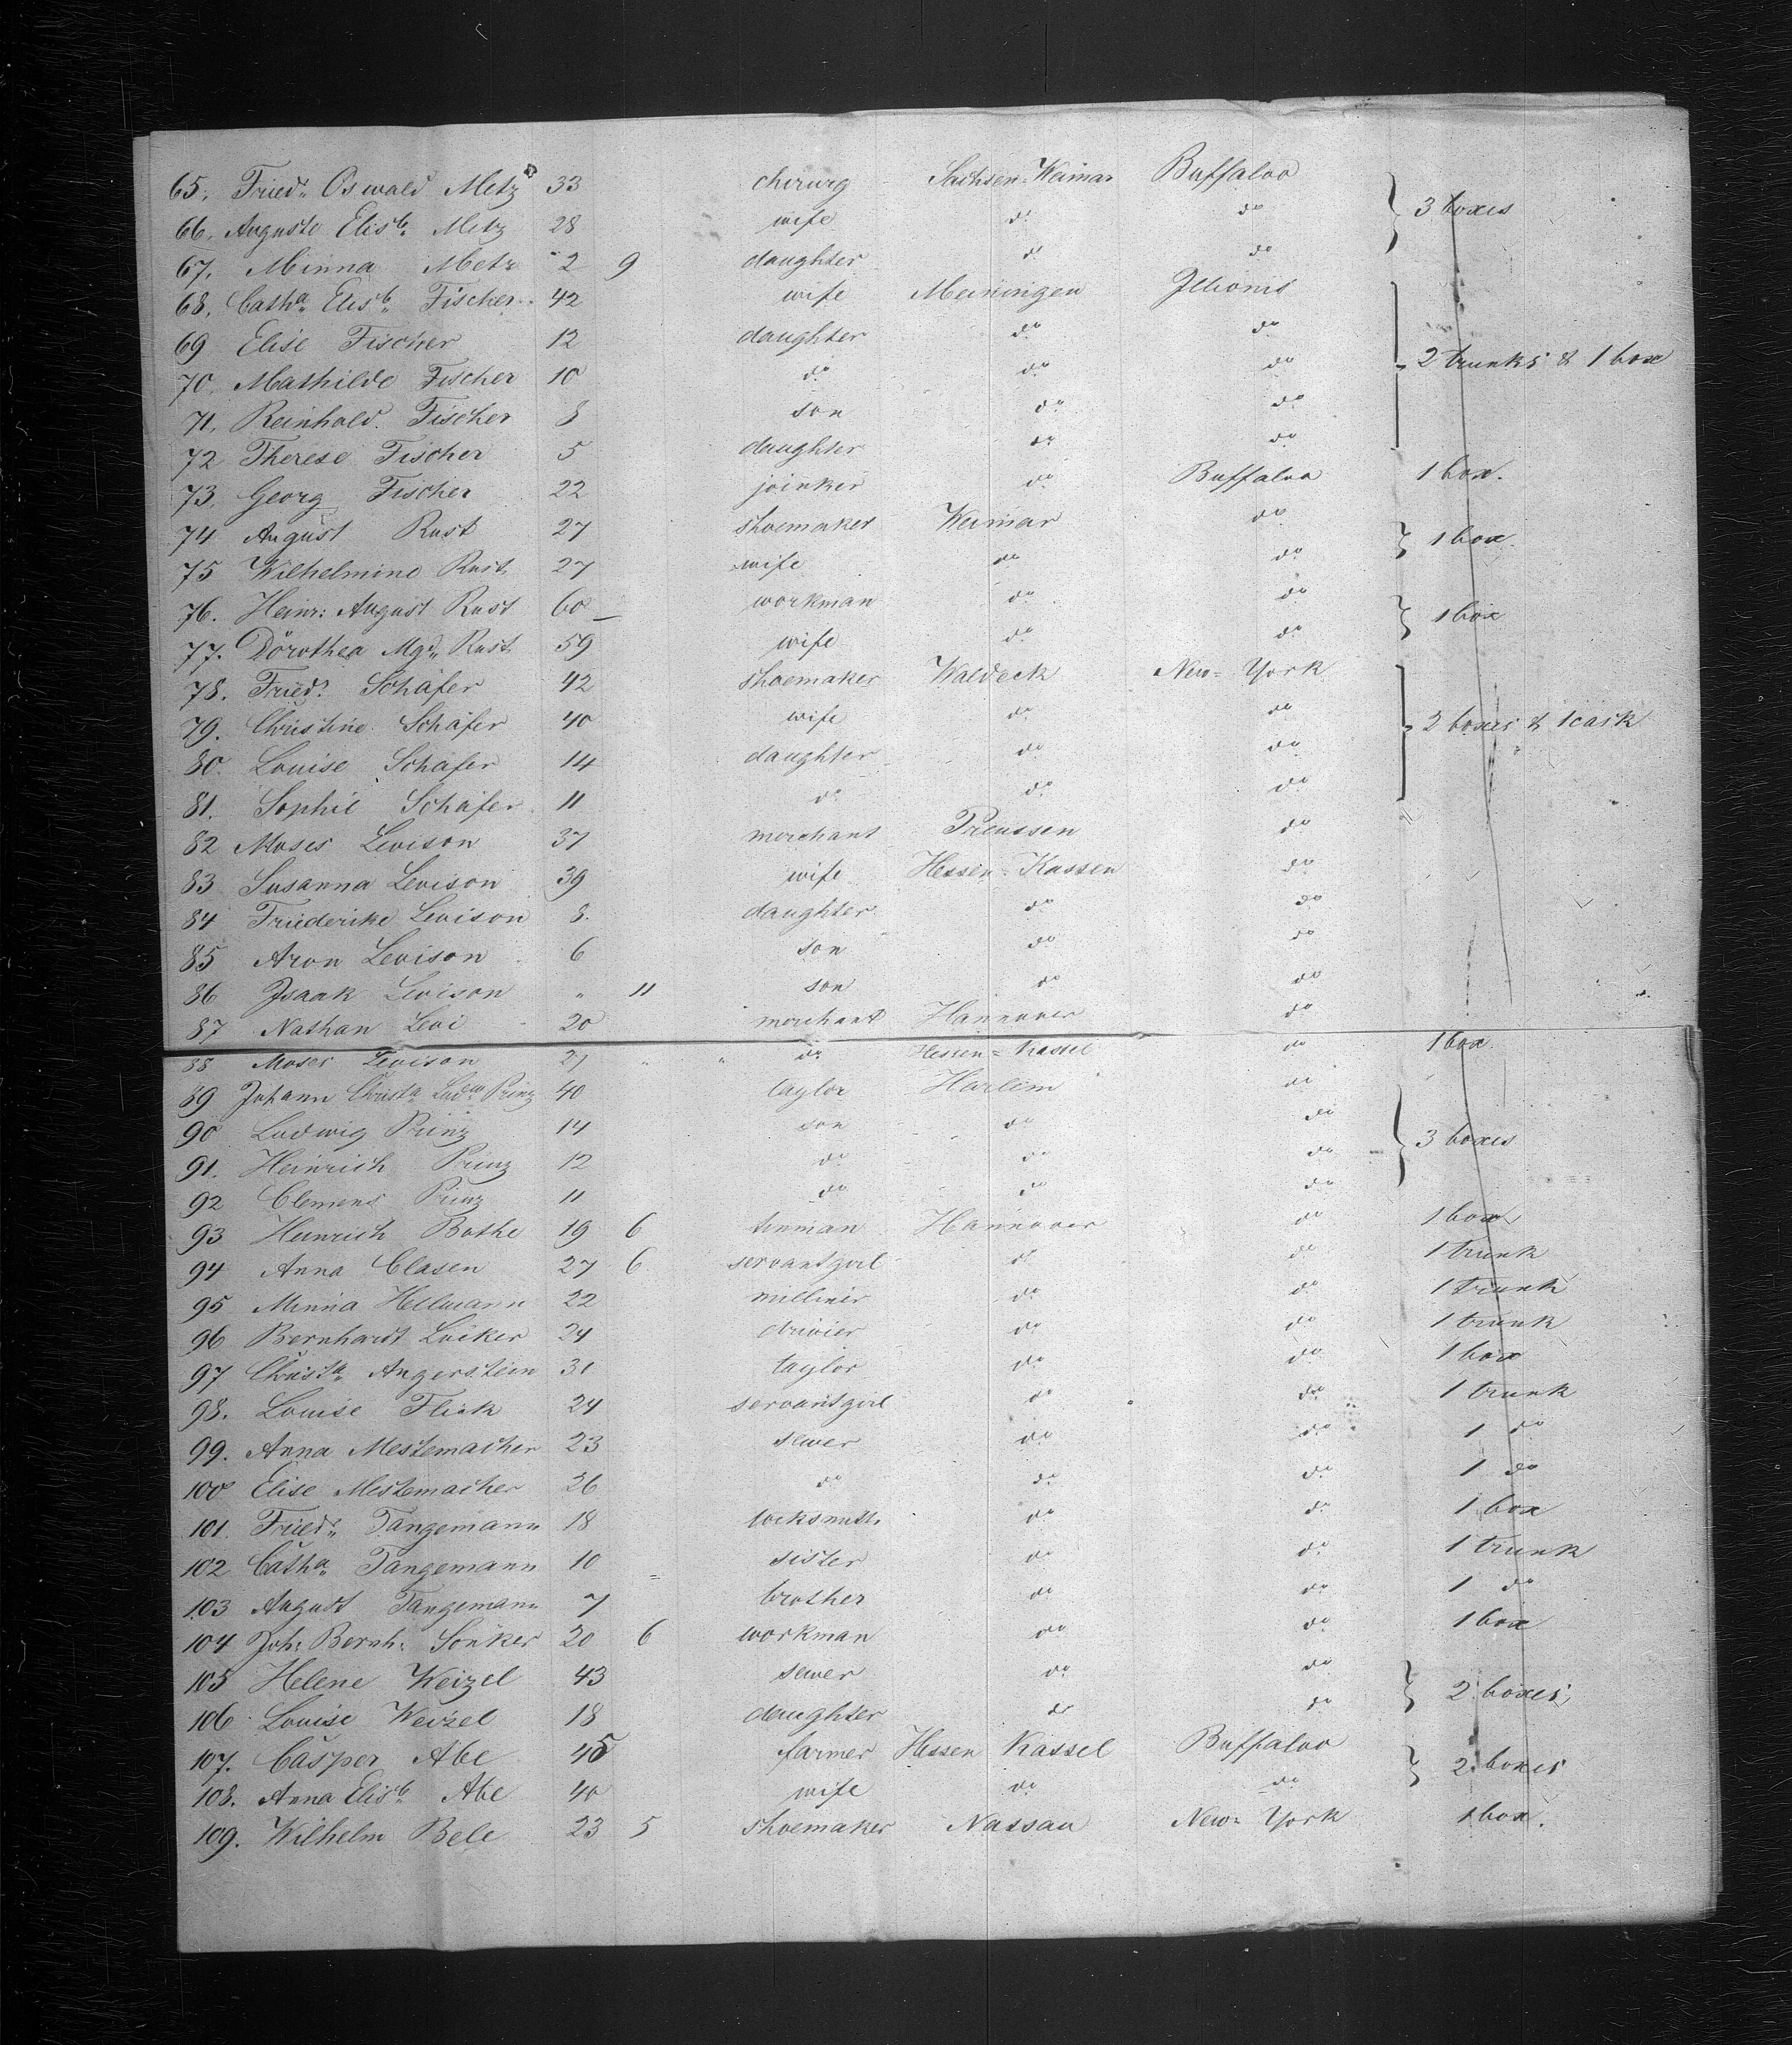 65. Fried: Oswald Metz 33 chirurg Sachsen-Weimar Buffaloo
66. Auguste Elisb: Metz 28 wife do do 3 boxes
67. Minna Metz 2 9 daughter do do
68. Catha: Elisb: Fischer 42 wife Meiningen Jllionis
69 Elise Fischer 12 daughter do do
70. Mathilde Fischer 10 do do do 2 trunks & 1 box
71. Reinhold Fischer 8 son do do
72 Therese Fischer 5 daughter do do
73. Georg Fischer 22 joinker do Buffaloo 1 box.
74 August Rust 27 shoemaker Weimar do
75 Wilhelmine Rust 27 wife do do 1 box
76. Heinr: August Rust 60 workman do do
77. Dorothea Mgd: Rust 59 wife do do 1 box
78. Fried: Schäfer 42 shoemaker Waldeck New-York
79. Christine Schäfer 40 wife do do 2 boxes & 1 cask
80. Louise Schäfer 14 daughter do do
81. Sophie Schäfer 11 do do do
82 Moses Levison 37 merchant Preussen do
83 Susanna Levison 39 wife Hessen-Kassen do
84 Friederike Levison 8. daughter do do
85 Aron Levison 6 son do do
86 Jsaak Levison " 11 son do do
87 Nathan Levi 20 merchant Hannover do
88 Moses Levison 21 " " do Hessen-Kassel do 1 box
89 Johann Christn: Ludw: Prinz 40 taylor Harlem do
90 Ludwig Prinz 14 son do do 3 boxes
91. Heinrich Prinz 12 do do do
92 Clemens Prinz 11 do do do
93 Heinrich Bothe 19 6 tinman Hannover do 1 box
94 Anna Clasen 27 6 servantgirl do do 1 trunk
95 Minna Hellmann 22 milliner do do 1 trunk
96 Bernhardt Lüiker 24 do do 1 trunk
97 Christn: Angerstein 31 taylor do do 1 box
98. Louise Flick 24 servantgirl do do 1 trunk
99. Anna Mestemacher 23 sewer do do 1 do
100 Elise Mestemacher 26 do do do 1 do
101. Fried: Tangemann 18 locksmith do do 1 box
102 Catha: Tangemann 10 sister do do 1 trunk
103 August Tangemann 7 brother do do 1 do
104 Joh: Bernh: Sonker 20 6 workman do do 1 box
105 Helene Weizel 43 sewer do do
106 Louise Weizel 18 daughter do do 2 boxes
107. Casper Abe 45 farmer Hessen Kassel Buffaloo
108. Anna Elisb: Abe 40 wife do do 2 boxes
109. Wilhelm Bele 23 5 shoemaker Nassau New-York 1 box.